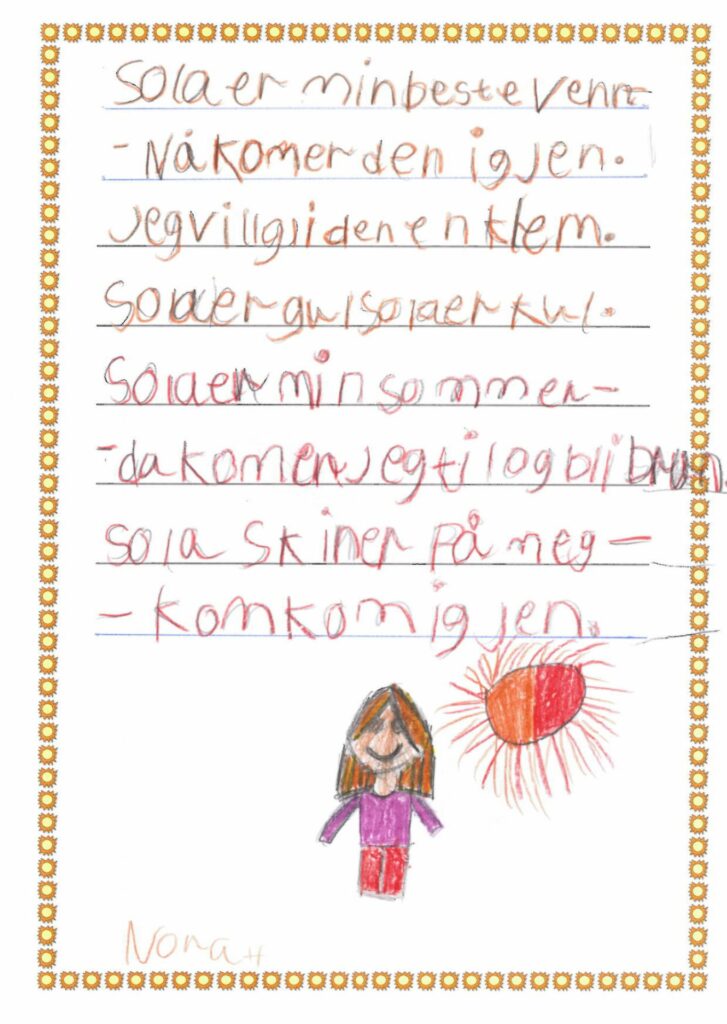 Sola er min beste venn-
- Nå komer den igjen.
Jeg vill gji den en klem.
Sola er gul sola er kul.
Sola er min sommer-
- da komer jeg til og bli brun.
sola skiner på meg -
- kom kom igjen.
Nora H